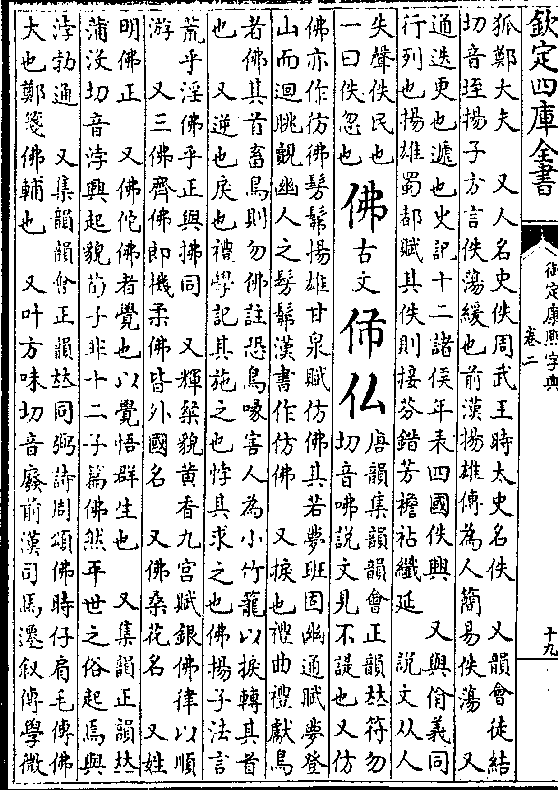 欽定四庫全書
御定康熙字典
卷二
十九
狐鄭大夫　又人名史佚周武王時太史名佚　又韻會徒結
切音垤揚子方言佚蕩緩也前漢揚雄傳為人簡易佚蕩　又
通迭更也遞也史記十二諸侯年表四國佚興　又與佾義同
行列也揚雄蜀都賦其佚則接芬錯芳襜袩纖延　說文从人
失聲佚民也
一曰佚忽也
佛 古文 仏
唐韻集韻韻會正韻𠀤符勿
切音咈說文見不諟也又仿
佛亦作彷佛髣髴揚雄甘泉賦仿佛其若夢班固幽通賦夢登
山而迴眺覿幽人之髣髴漢書作仿佛　又捩也禮曲禮獻鳥
者佛其首畜鳥則勿佛註恐鳥喙害人為小竹籠以捩轉其首
也　又逆也戾也禮學記其施之也悖其求之也佛揚子法言
荒乎淫佛乎正與拂同　又輝粲貌黄香九宫賦銀佛律以順
游　又三佛齊佛郎機柔佛皆外國名　又佛桑花名　又姓
明佛正　又佛佗佛者覺也以覺悟群生也　又集韻正韻𠀤
蒲沒切音浡興起貌荀子非十二子篇佛然平世之俗起焉與
浡勃通　又集韻韻會正韻𠀤同弼詩周頌佛時仔肩毛傳佛
大也鄭箋佛輔也　又叶方味切音廢前漢司馬遷叙傳學微